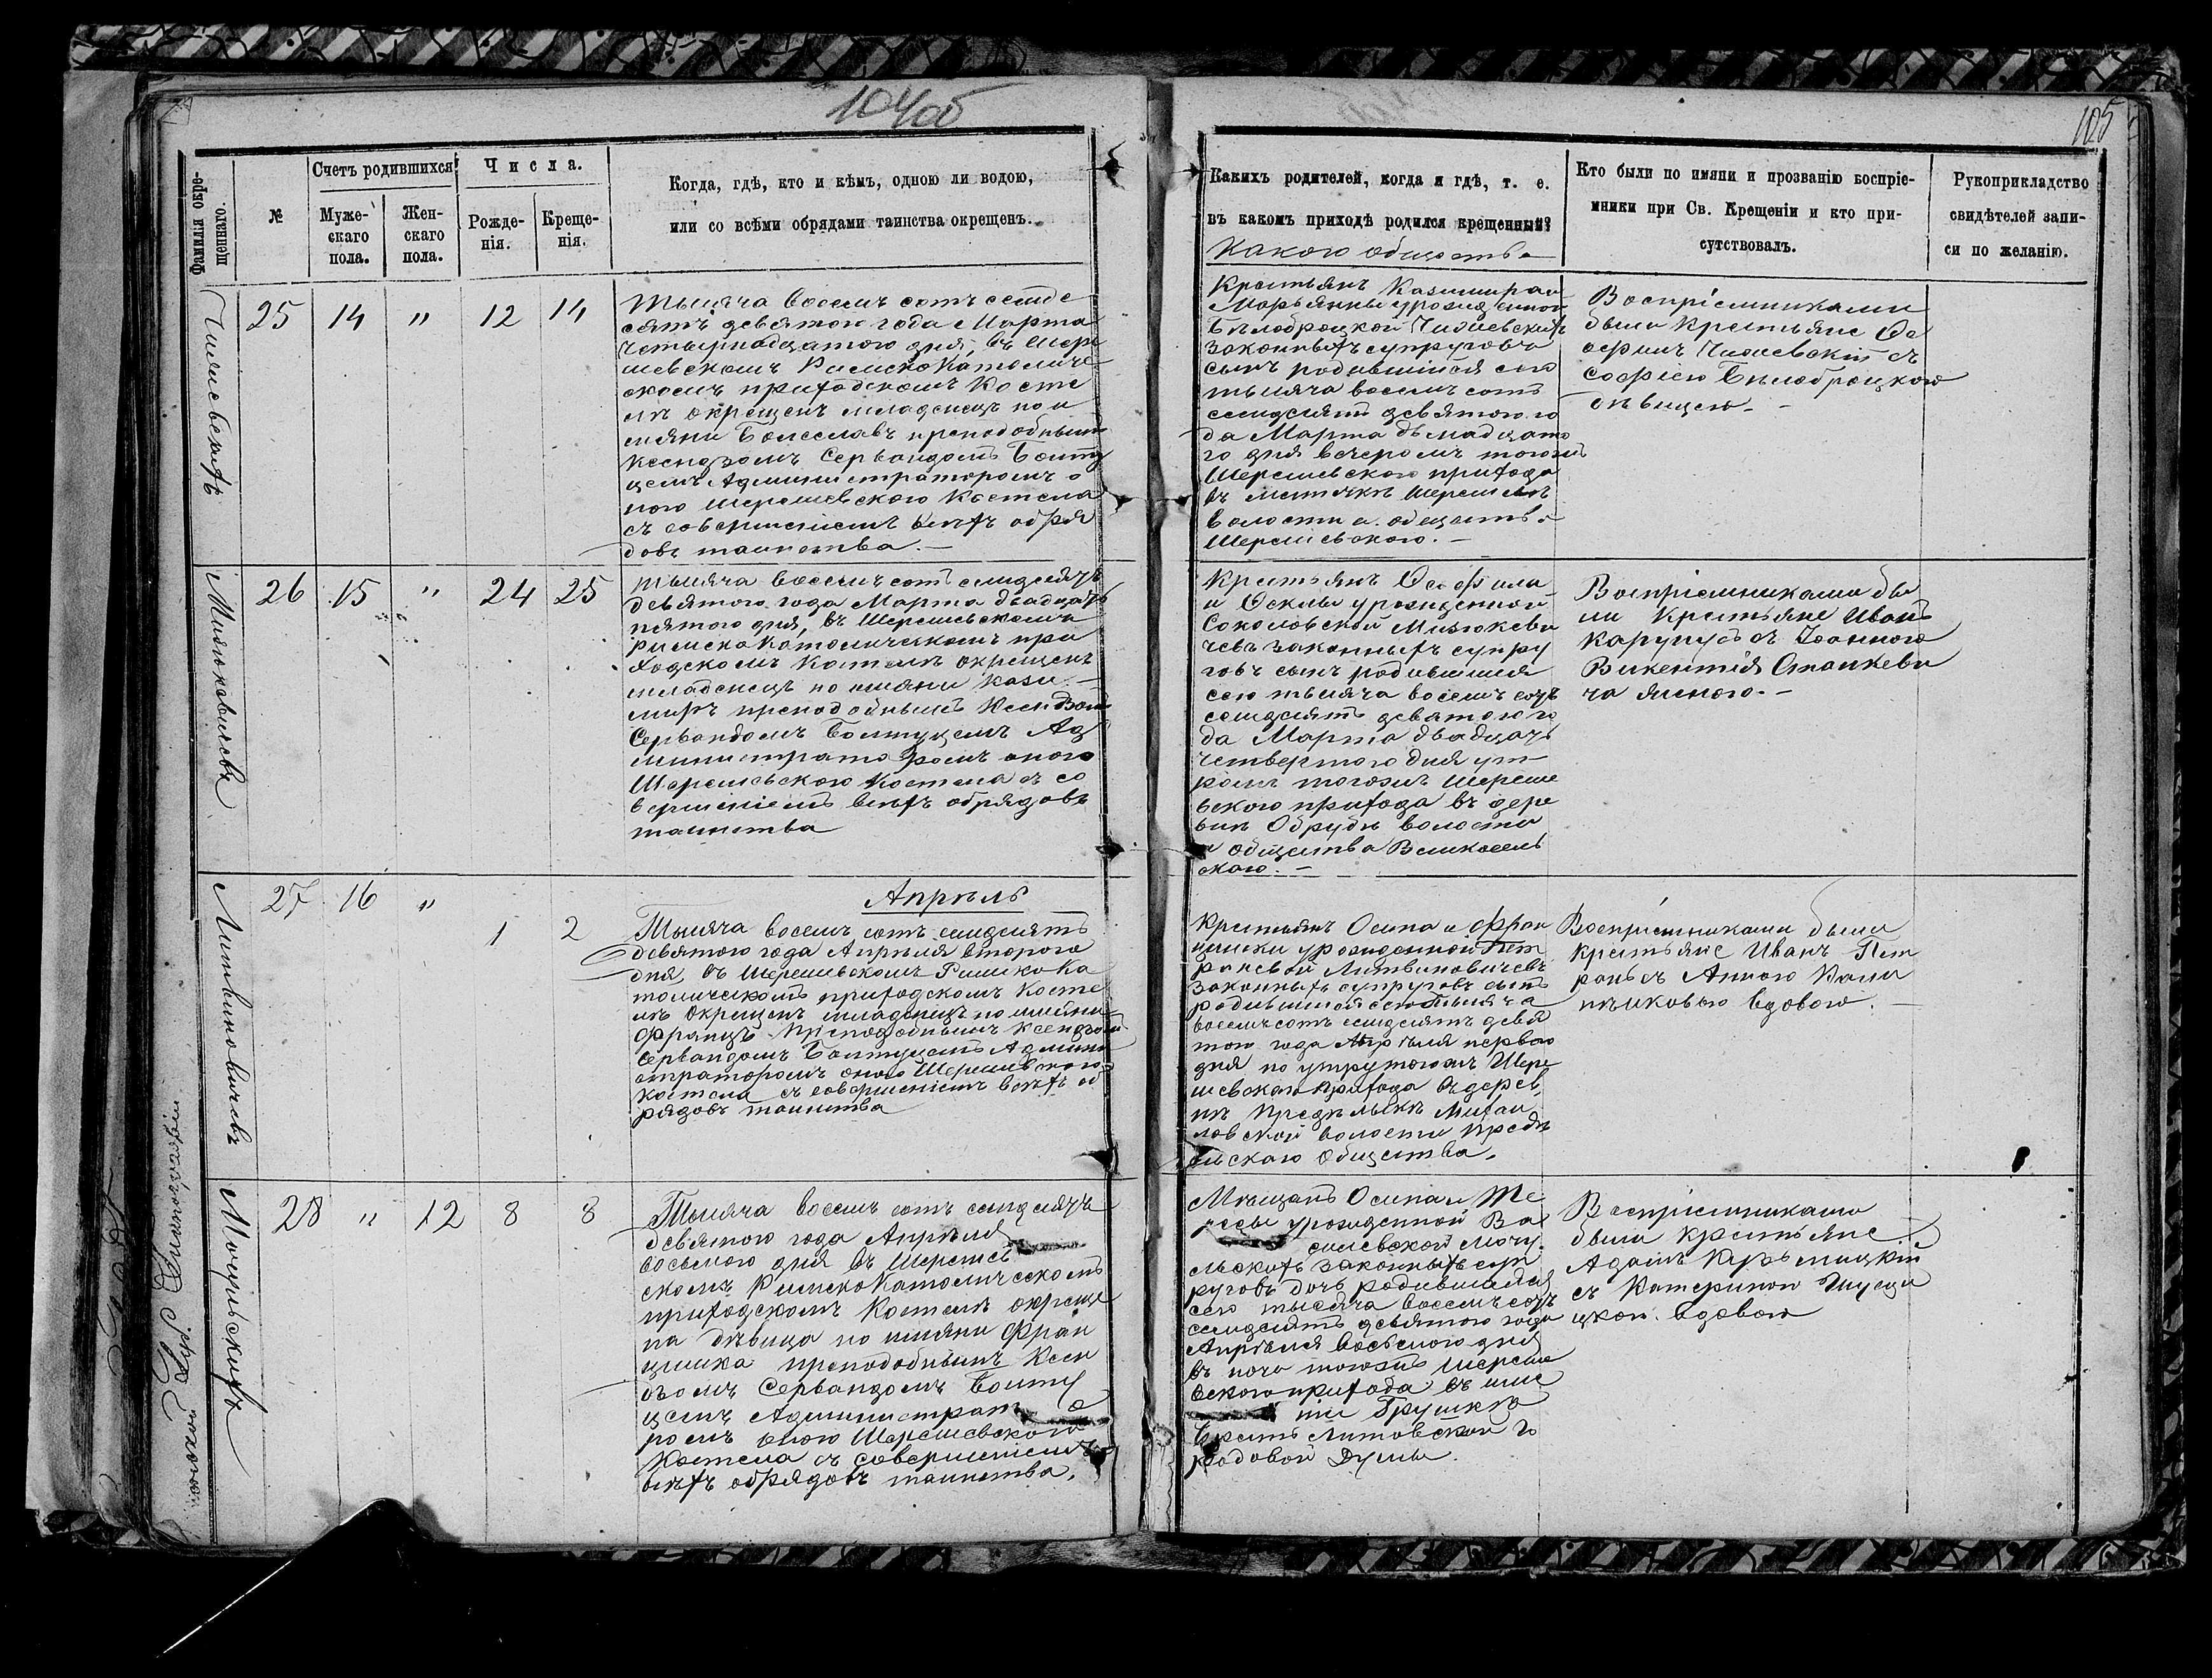 104об
105
Фамилія окре-
щеннаго.
№
Счетъ родившихся
Муже-
скаго
пола.
Жен-
скаго
пола.
Числа.
Рожде-
нія.
Креще-
нія.
Когда, гдѣ, кто и кѣмъ, одною ли водою,
или со всѣми обрядами таинства окрещенъ.
Какихъ родителей, когда и гдѣ, т. е.
въ какомъ приходѣ родился крещенный?
Какого общества
Кто были по имяни и прозванію воспріе-
мники при Св. Крещеніи и кто при-
сутствовалъ.
Рукоприкладство
свидѣтелей запи-
си по желанію.
25 14 " 12 14
Тысяча восемь сотъ семьде
сятъ девятого года Марта
Четырнадцатого дня, въ Шере
шевскомъ Римскокатоличе
скомъ приходскомъ Косте
лѣ окрещенъ младенецъ по и
мяни Болеславъ преподобнымъ
Ксендзомъ Сервандомъ Болту
цемъ Администраторомъ о
ного Шерешевского Костела
съ совершеніемъ всѣхъ обря
довъ таинства.—
Крестьянъ Казимира и
Марьянны урожденной
Бѣлоброцкой
законныхъ супруговъ
сынъ родившійся сего
тысяча восемь сотъ
семдесятъ девятого го
да Марта двѣнадцато
го дня вечеромъ тогожъ
Шерешевского прихода
въ мѣстечкѣ Шерешевѣ
волости и общества
Шерешевского.—
Воспріемниками
были Крестьяне Ос
офимъ съ
Софіею Бѣлоброцкою
дѣвицею.—
26 15 " 24 25
Тысяча восемь сотъ семдесятъ
девятого года Марта двадцать
пятого дня, въ Шерешевскомъ
римскокатолическомъ при
ходскомъ костелѣ окрещенъ
младенецъ по имяни Кази—
миръ преподобнымъ Ксендзомъ
Сервандомъ Болтуцемъ Ад
министраторомъ оного
Шерешевского Костела съ со
вершеніемъ всѣхъ обрядовъ
таинства
Крестьянъ
и урожденной
Соколовской Мизюкеви
чевъ законныхъ супру
говъ сынъ родившійся
сего тысяча восемь сотъ
семдесятъ девятого го
да Марта двадцать
четвертого дня ут—
ромъ тогожъ Шереше
вского прихода въ дере
внѣ Обрубѣ волости
и общества Великосель
ского.—
Воспріемниками бы
ли Крестьяне Иванъ
съ Іоанною
Викентія Станкеви
ча женою.—
Литвиновичевъ
27 16 " 1 2
Апрѣль
Тысяча восемь сотъ семдесятъ
девятого года Апрѣля второго
дня, въ Шерешевскомъ Римско Ка
толическомъ приходскомъ Косте
лѣ окрещенъ младенецъ по имяни
Францъ преподобнымъ Ксендзомъ
Сервандомъ Болтуцемъ Админи
страторомъ оного Шерешевского
костела съ совершеніемъ всѣхъ об
рядовъ таинства
Крестьянъ Осипа и Фран
цишки урожденной Пет
Литвиновичевъ
законныхъ супруговъ сынъ
родившійся сего тысяча
восемь сотъ семдесятъ девя
того года Апрѣля первого
дня по утру тогожъ Шере
шевского прихода въ дерев
нѣ Михай
ловской волости
Общества.
Воспріемниками были
крестьяне Иванъ Пет
съ Анною
вдовою.—
28 " 12 8 8
Тысяча восемь сотъ семдесятъ
девятого года Апрѣля
восьмого дня въ Шерешев
скомъ РимскоКатолическомъ
приходскомъ Костелѣ окреще
на дѣвица по имяни Фран
цишка преподобнымъ Ксен
дзомъ Сервандомъ Болту
цемъ Администрато
ромъ оного Шерешевского
Костела съ совершеніемъ
всѣхъ обрядовъ таинства.
Мѣщанъ Осипа и Те
ресы урожденной Ва
силевской Мочу
льскихъ законныхъ суп
руговъ дочь родившаяся
сего тысяча восемь сотъ
семдесятъ девятого года
Апрѣля восьмого дня
въ ночи тогожъ Шереше
вского прихода въ имѣ
ніи Грушкѣ
Брестъ Литовской Го
родовой Думы.
Воспріемниками
были крестьяне
Адамъ
съ Катериной
вдовою